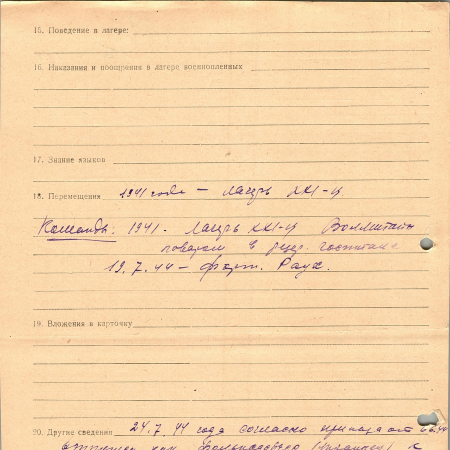 15. Поведение в лагере:
16. Наказания и поощрения в лагере военнопленных
17. Знание языков
18. Перемещения 1941 года — лагерь XXI-ц
Команды: 1941. Лагерь XXI-ц Воллштайн
поваром в госпитале
19.7.44 — Раух.
19. Вложения в карточку
20. Другие сведения 24.7.44 года согласно приказа от